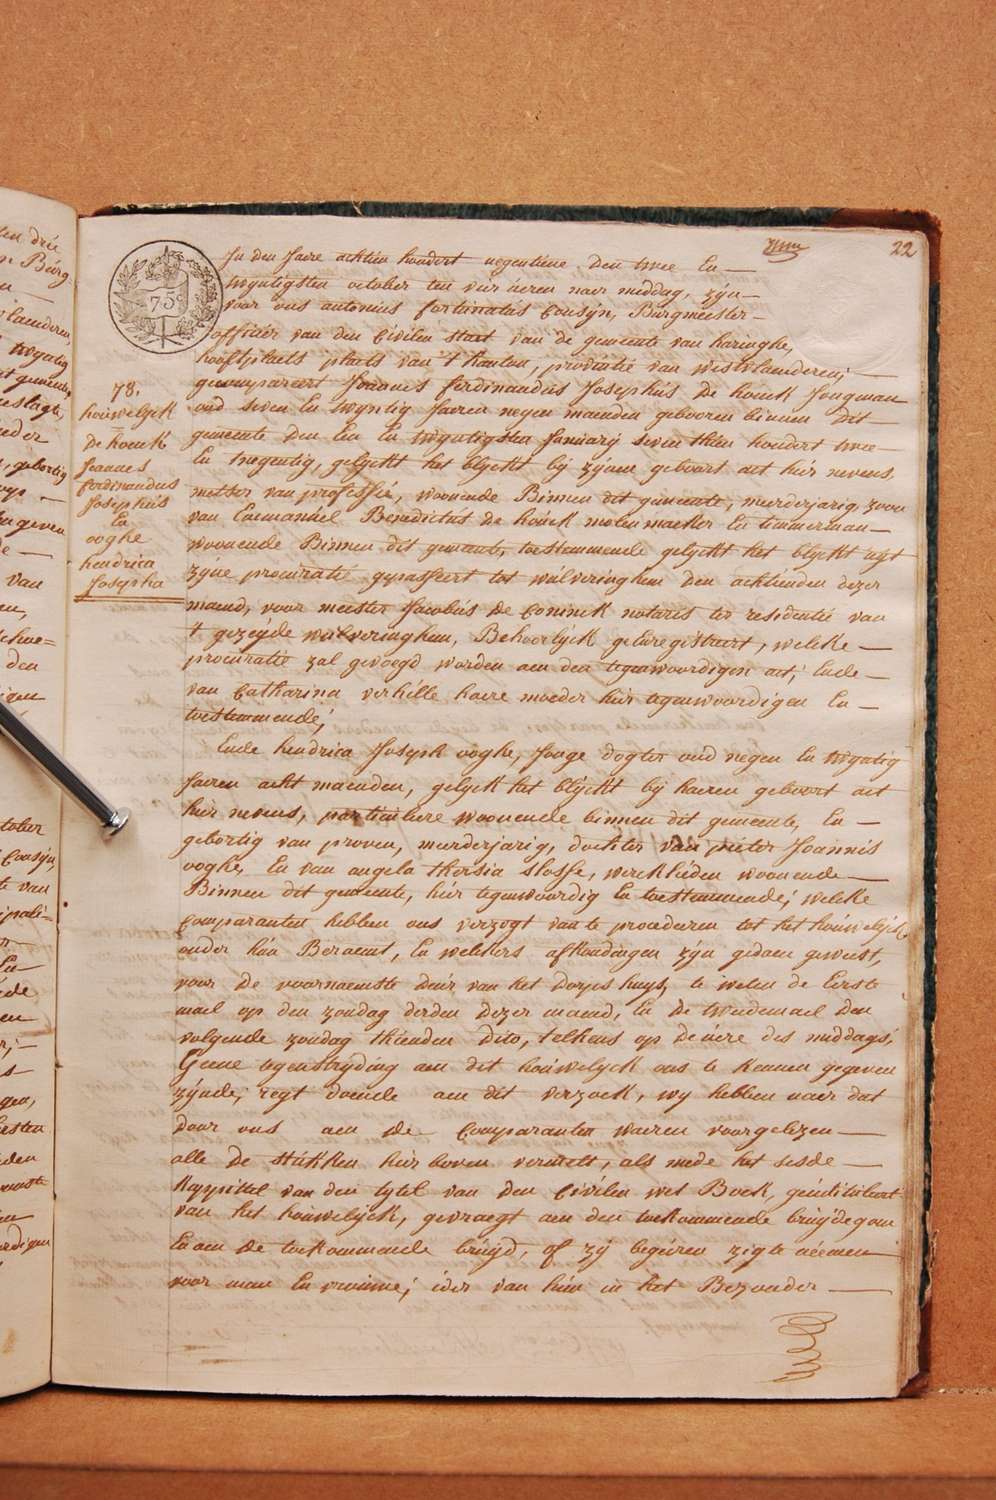 22
75c
In den Jaere achtien hondert negentiene, den twee En
twyntigsten october ten vier ueren naer middag, zÿn
voor ons antonius fortunatus Cousÿn, Burgmeester
officiér van den Civilen staet van de gemeente van haringhe,
hooftplaets plaets van 't kanton, provintie van westvlaenderen;
gecompareert Joannes ferdinandus Josephus De houck Jongman
oud seven En twyntig Jaeren negen maenden gebooren binnen dit
gemeente den Een En twyntigsten Januarÿ seven thien hondert twee
En tnegentig, gelyckt het blyckt bÿ zÿnen geboort act hier nevens,
metser van professié, woonende Binnen dit gemeente, meerderjarig zoon
van Emmanuel Benedictus De houck molenmaeker En timmerman
woonende Binnen dit gemeente, toestemmende gelyckt het blyckt uÿt
zyne procuratié gepasseert tot wulveringhem den achtienden dezer
maend, voor meester Jacobus De Coninck notaris ter residentié van
't gezeÿde wulveringhem, Behoorlyck geluregistreert, welcke
procuratie zal gevoegd worden aen den tegenwoordigen act; Ende
van Catharina verhille haere moeder hier tegenwoordigen En
toestemmende;
Ende hendrica Joseph ooghe, Jonge dogter oud negen En twyntig
Jaeren acht maenden, gelyck het blÿckt bÿ haeren geboort act
hier nevens, particuliere woonende binnen dit gemeente, En
gebortig van proven, meerderjarig, dochter van pieter Joannis
ooghe, En van angela theresia Slosse, wercklieden woonende
Binnen dit gemeente, hier tegenwoordig En toestemmende; welcke
Comparanten hebben ons verzogt van te procederen tot het houwelÿck
onder hun Beraemt, En welckers afkondingen zÿn gedaen geweest,
voor de voornaemste deur van het dorps huys, te weten de Eerste
mael op den zondag derden dezer maend, En de tweedemael den
volgende zondag thienden dito, telkens op de uere des middags,
Geene tegenstryding aen dit houwelyck ons te kennen gegeven
zÿnde, regt doende aen dit verzoek, wy hebben naer dat
door ons aen de Comparanten waeren voorgelezen
alle de stukken hier boven vermelt, als mede het sesde
kappittel van den tytel van den Civilen wet Boek, geintituleert
van het houwelÿck, gevraegt aen den toekommende bruÿdegom
En aen de toekommende bruÿd, of zÿ begeeren zig te neemen
voor man En vrouwe; ider van hun in het Bezonder
78.
houwelyck
De houck
Joannes
ferdinandus
Josephus
En
ooghe
hendrica
Josepha